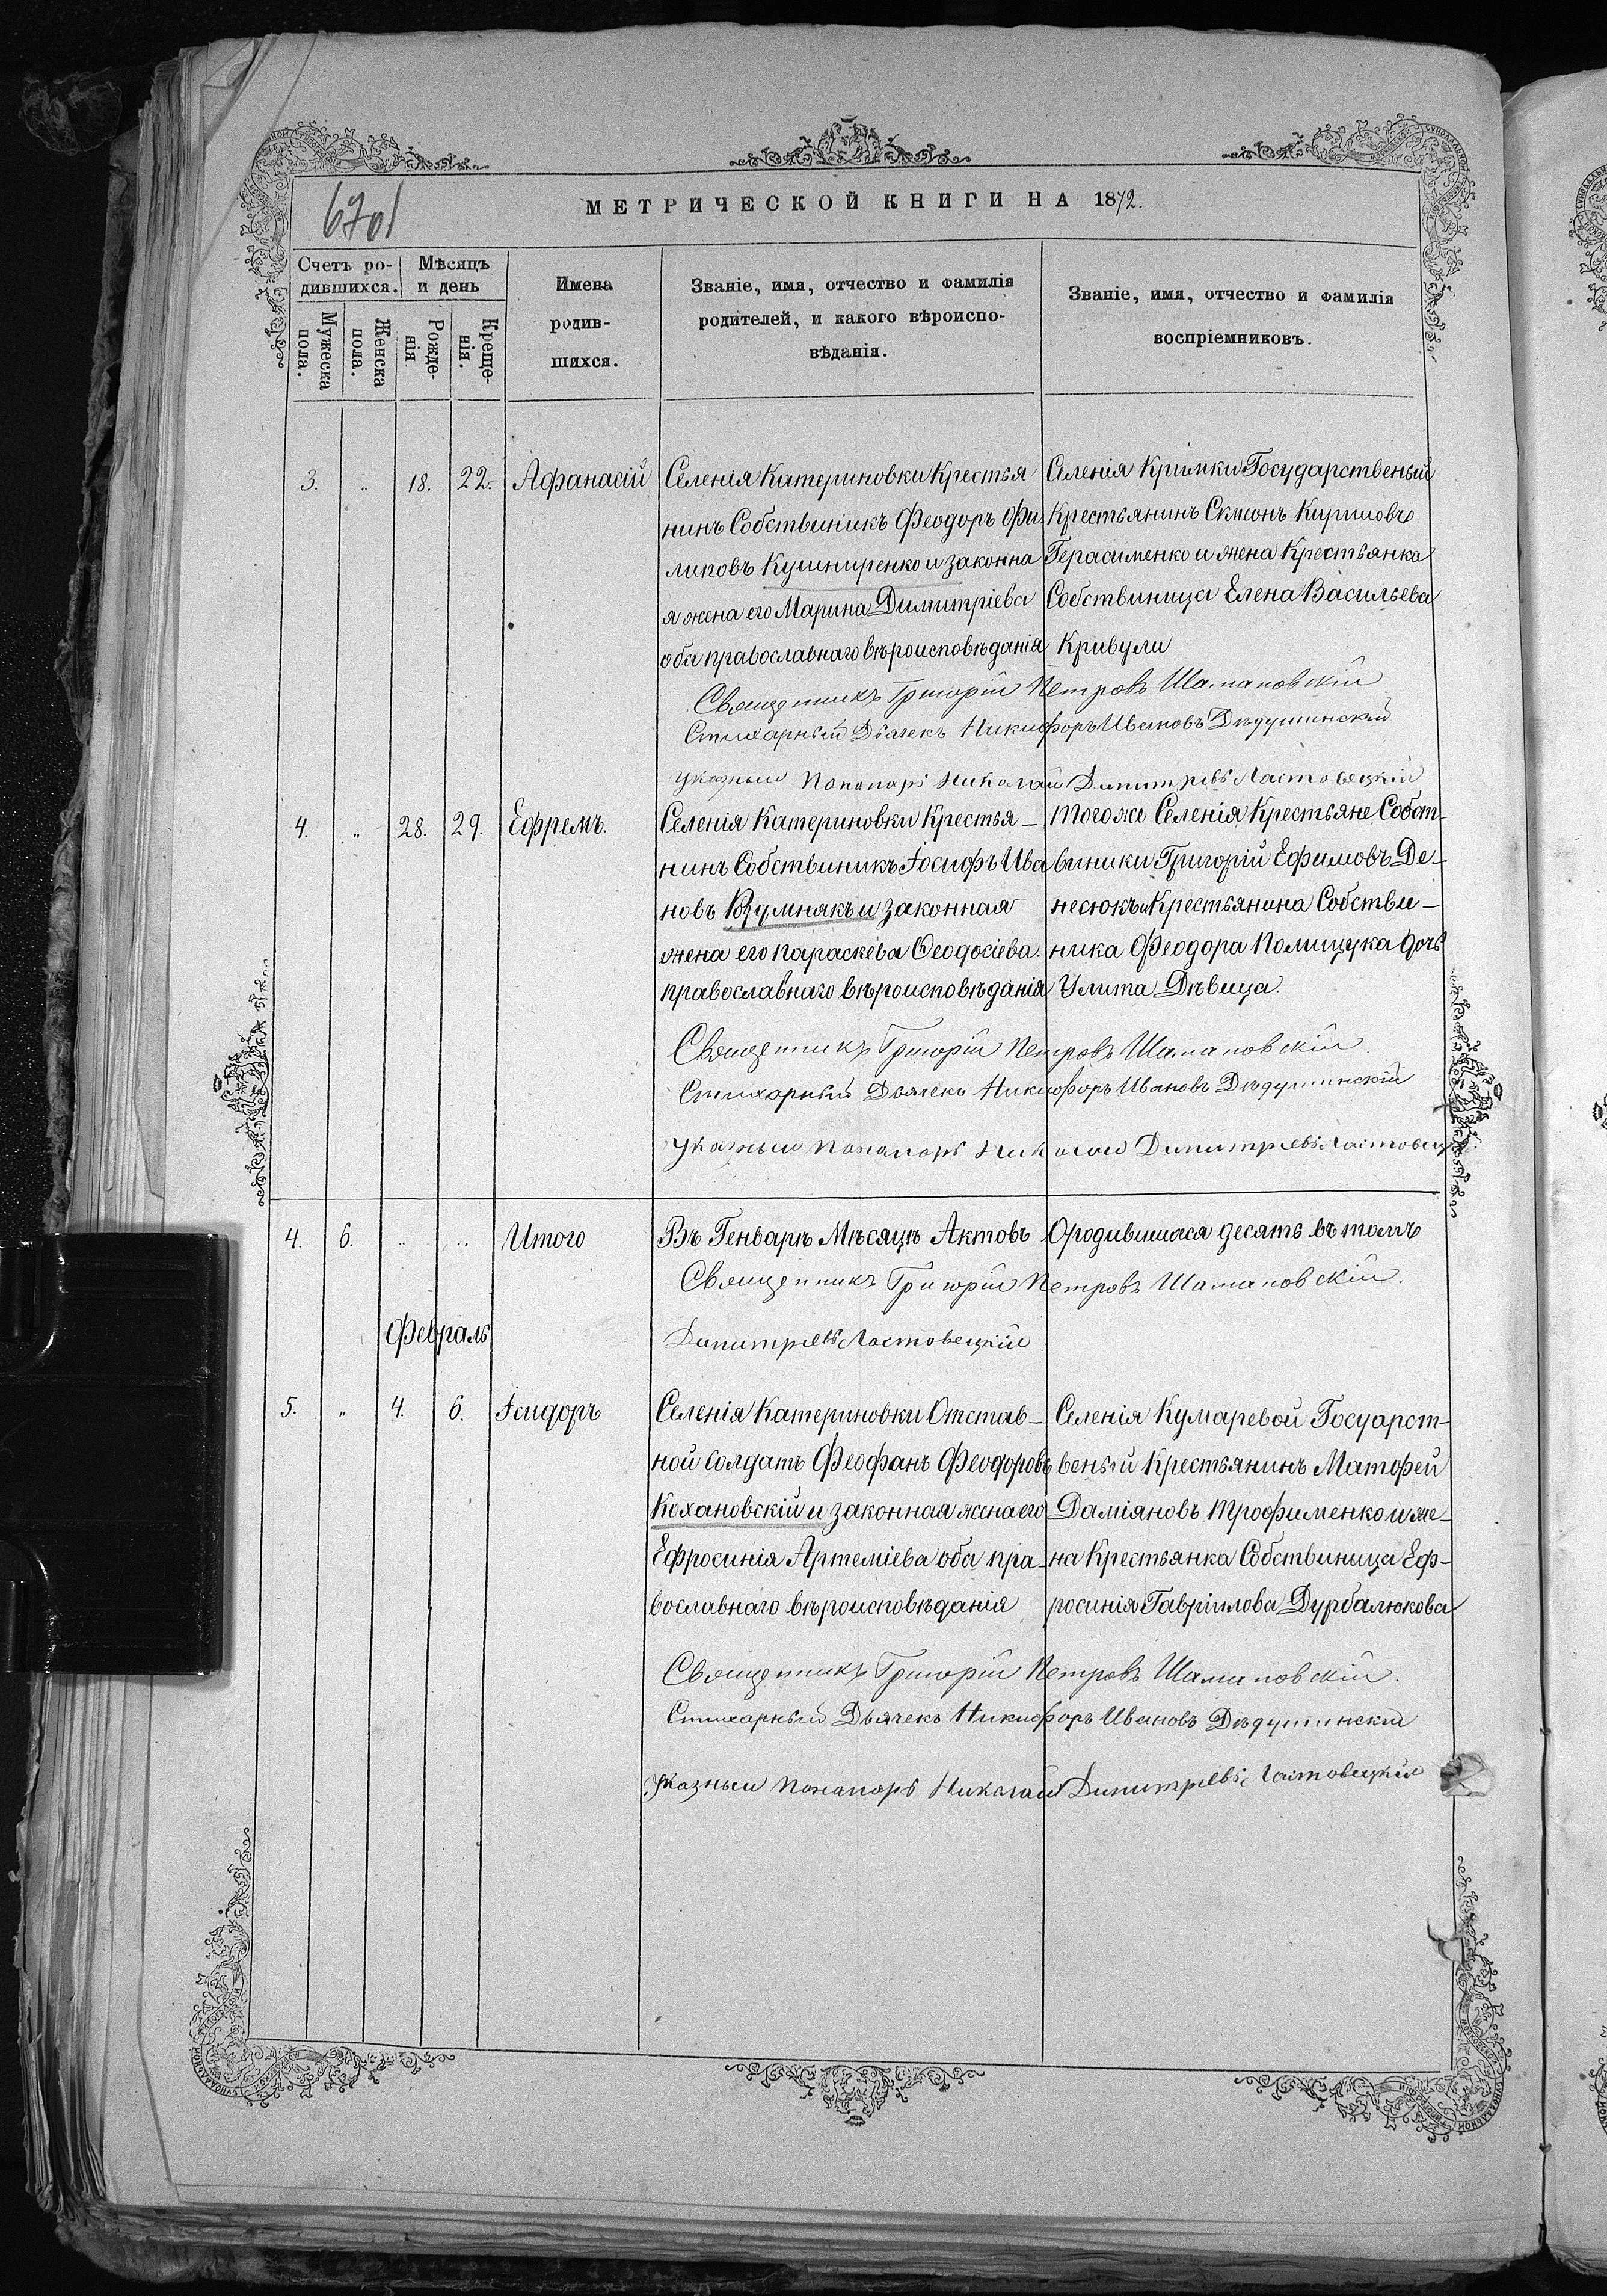 670
МЕТРИЧЕСКОЙ КНИГИ НА 1872.
Счетъ ро-
дившихся.
Мужеска
пола.
Женска
пола.
Мѣсяцъ
и день
Рожде-
нія
Креще-
нія.
Имена
родив-
шихся.
Званіе, имя, отчество и фамилія
родителей, и какого вѣроиспо-
вѣданія.
Званіе, имя, отчество и фамилія
воспріемниковъ.
3. " 18. 22. Афанасій
Селенія Катериновки Крестья
нинъ Собствиникъ Феодоръ Фи
липовъ Кушниренко и законна
я жена его Марина Димитріева
оба православнаго вѣроисповѣданія
Селенія Кримки Государственый
Крестьянинъ Симіонъ Кириловъ
Герасименко и жена Крестьянка
Собствиница Елена Васильева
Кривули
Священникъ Григорій Петровъ Шамановскій
Стихарный Дьячекъ Никифоръ Ивановъ Дѣдушинскій
Указный Пономарь Николай Димитріевъ Ластовецкій
4. " 28. 29. Ефремъ.
Селенія Катериновки Крестья-
нинъ Собствиникъ Іосифъ Ива
новъ Возумнякъ и законная
жена его Параскева Феодосіева.
православнаго вѣроисповѣданія
Тогоже Селенія Крестьяне Собст-
виники Григорій Ефимовъ Де-
несюкъ и Крестьянина Собстви-
ника Феодора Полищука дочь
Улита Дѣвица.
Священникъ Григорій Петровъ Шамановскій
Стихарный Дьячекъ Никифоръ Ивановъ Дѣдушинскій
Указный Пономарь Николай Димитріевъ
4. 6. " " Итого
Въ Генварѣ Мѣсяцѣ Актовъ Ородившихся десять въ томъ
Священникъ Григорій Петровъ Шамановскій.
Димитріевъ Ластовецкій
Февраль
5. " 4. 6. Ісидоръ
Селенія Катериновки Отстав-
ной солдатъ Феофанъ Феодоровъ
Кохановскій и законная жена его
Ефросинія Артеміева оба пра-
вославнаго вѣроисповѣданія
Селенія Кумаревой Госуарст-
веный Крестьянинъ Матфей
Даміяновъ Трофименко и же-
на Крестьянка Собствиница Еф-
росинія Гавріилова Дурбалюкова
Священникъ Григорій Петровъ Шамановскій.
Стихарный Дьячекъ Никифоръ Ивановъ Дѣдушинскій
Указный Пономарь Николай Димитріевъ Ластовецкій